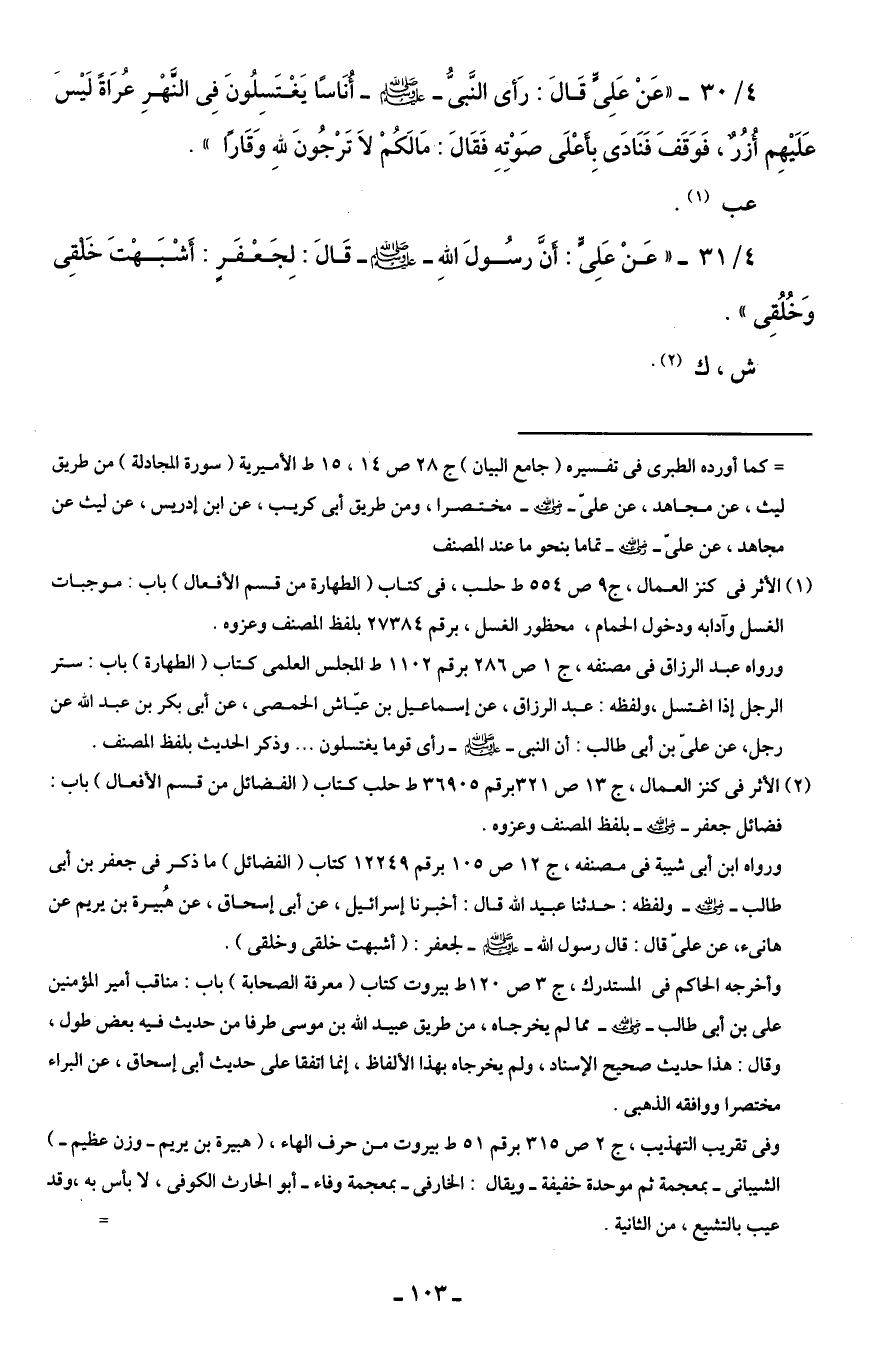 ٤/ ٣٠ ـ «عَنْ عَلِىٍّ قَالَ : رَأى النَّبىُّ ـ ﷺ ـ أُنَاسًا يَغْتَسِلُونَ فِى النَّهْرِ عُرَاةً لَيْسَ
عَلَيْهِم أُزُرٌ ، فَوَقَفَ فَنَادَى بِأَعْلَى صَوْتِهِ فَقَالَ : مَالَكُمْ لاَ تَرْجُونَ لله وَقَارًا » .
عب (١) .
٤/ ٣١ ـ « عَنْ عَلِىٍّ : أَنَّ رسُولَ اللهِ ـ ﷺ ـ قَالَ : لِجَعْفَرٍ : أَشْبَهْتَ خَلْقِى
وَخُلُقِى » .
ش ، ك (٢) .
= كما أورده الطبرى فى تفسيره ( جامع البيان ) ج ٢٨ ص ١٤ ، ١٥ ط الأميرية ( سورة المجادلة ) من طريق
ليث ، عن مجاهد ، عن علىّ ـ رضي الله عنه ـ مختصرا ، ومن طريق أبى كريب ، عن ابن إدريس ، عن ليث عن
مجاهد ، عن علىّ ـ رضي الله عنه ـ تماما بنحو ما عند المصنف
(١) الأثر فى كنز العمال ، ج٩ ص ٥٥٤ ط حلب ، فى كتاب ( الطهارة من قسم الأفعال ) باب : موجبات
الغسل وآدابه ودخول الحمام ، محظور الغسل ، برقم ٢٧٣٨٤ بلفظ المصنف وعزوه .
ورواه عبد الرزاق فى مصنفه ، ج ١ ص ٢٨٦ برقم ١١٠٢ ط المجلس العلمى كتاب ( الطهارة ) باب : ستر
الرجل إذا اغتسل ،ولفظه : عبد الرزاق ، عن إسماعيل بن عيّاش الحمصى ، عن أبى بكر بن عبد الله عن
رجل، عن علىّ بن أبى طالب : أن النبى ـ ﷺ ـ رأى قوما يغتسلون ... وذكر الحديث بلفظ المصنف .
(٢) الأثر فى كنز العمال ، ج ١٣ ص ٣٢١برقم ٣٦٩٠٥ ط حلب كتاب ( الفضائل من قسم الأفعال ) باب :
فضائل جعفر ـ رضي الله عنه ـ بلفظ المصنف وعزوه .
ورواه ابن أبى شيبة فى مصنفه ، ج ١٢ ص ١٠٥ برقم ١٢٢٤٩ كتاب ( الفضائل ) ما ذكر فى جعفر بن أبى
طالب ـ رضي الله عنه ـ ولفظه : حدثنا عبيد الله قال : أخبرنا إسرائيل ، عن أبى إسحاق ، عن هُبيرة بن يريم عن
هانىء، عن علىّ قال : قال رسول الله ـ ﷺ ـ لجعفر : ( أشبهت خلقى وخلقى ) .
وأخرجه الحاكم فى المستدرك ، ج ٣ ص ١٢٠ط بيروت كتاب ( معرفة الصحابة ) باب : مناقب أمير المؤمنين
على بن أبى طالب ـ رضي الله عنه ـ مما لم يخرجاه ، من طريق عبيد الله بن موسى طرفا من حديث فيه بعض طول ،
وقال : هذا حديث صحيح الإسناد ، ولم يخرجاه بهذا الألفاظ ، إنما اتفقا على حديث أبى إسحاق ، عن البراء
مختصرا ووافقه الذهبى .
وفى تقريب التهذيب ، ج ٢ ص ٣١٥ برقم ٥١ ط بيروت من حرف الهاء ، ( هبيرة بن يريم ـ وزن عظيم ـ )
الشيبانى ـ بمعجمة ثم موحدة خفيفة ـ ويقال : الخارفى ـ بمعجمة وفاء ـ أبو الحارث الكوفى ، لا بأس به ،وقد
عيب بالتشيع ، من الثانية . =
ـ ١٠٣ ـ